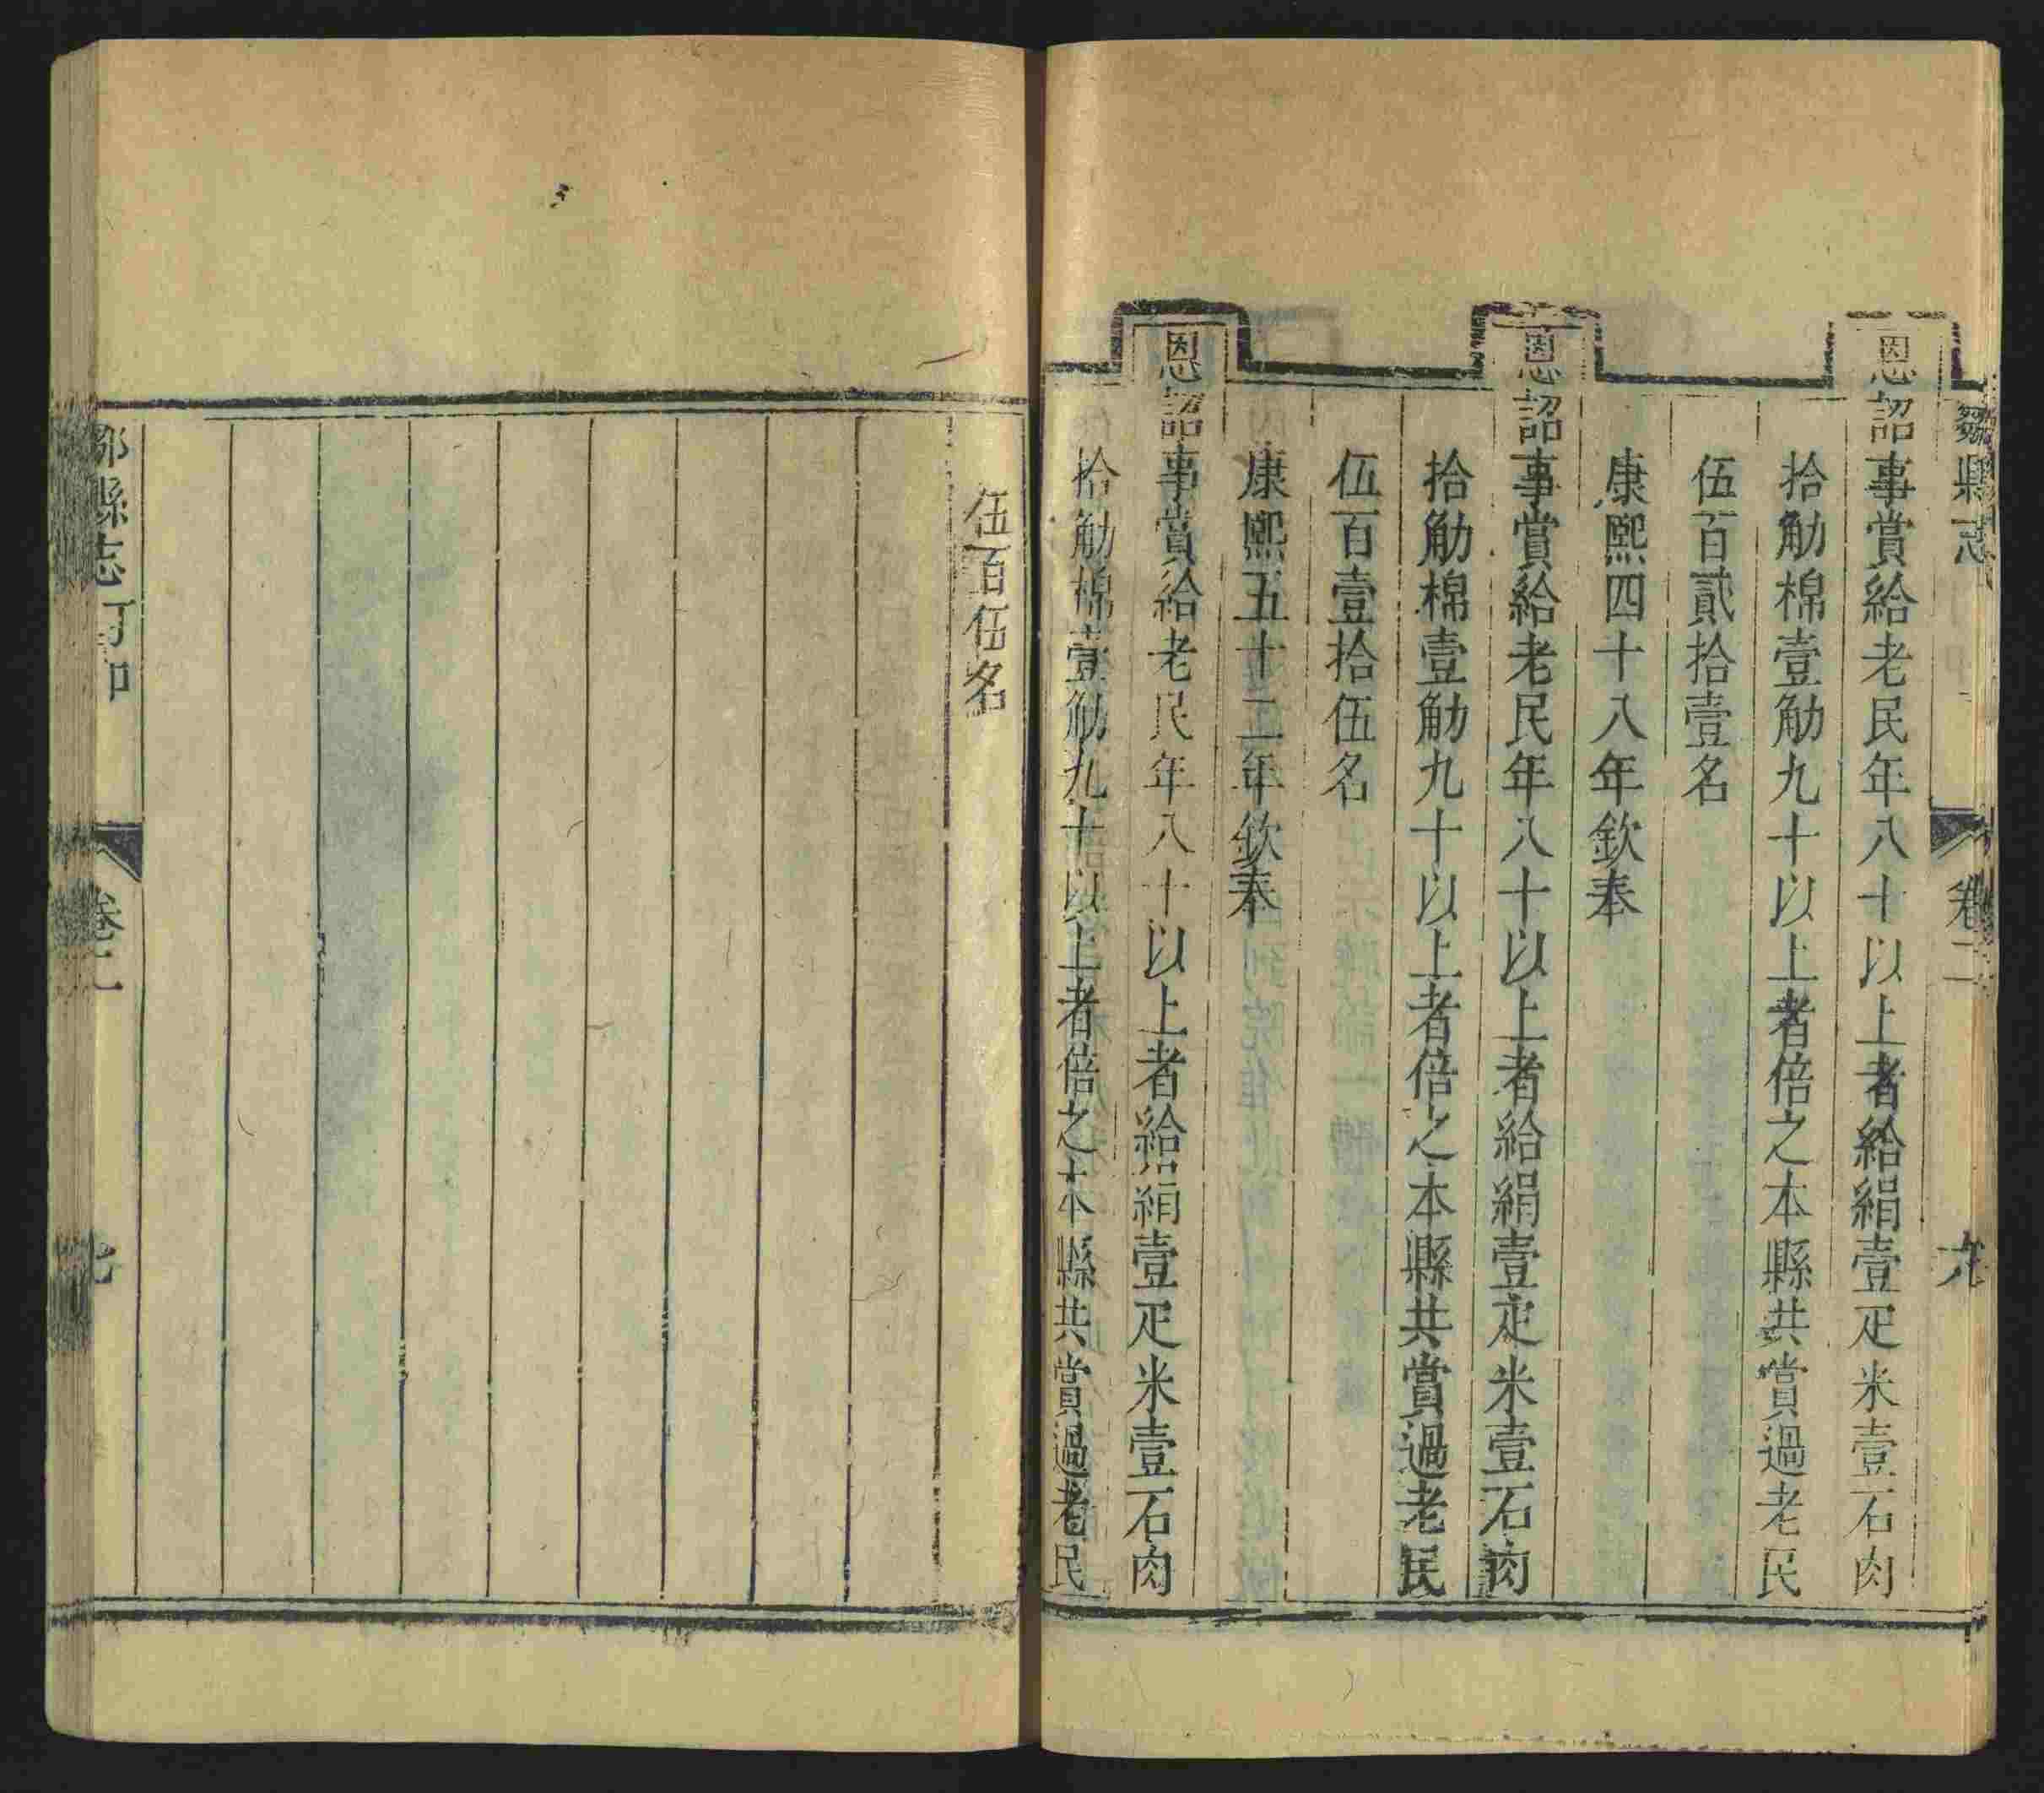 鄒縣志
卷二
恩詔事賞給老民年八十以上者給絹壹疋米壹石肉
拾觔棉壹觔九十以上者倍之本縣共賞過老民
伍百貳拾壹名
康熙四十八年欽奉
恩詔事賞給老民年八十以上者給絹壹疋米壹石肉
拾觔棉壹觔九十以上者倍之本縣共賞過老民
伍百壹拾伍名
康熙五十二年欽奉
恩詔事賞給老民年八十以上者給絹壹疋米壹石肉
拾觔棉壹觔九十以上者倍之本縣共賞過老民
伍百伍名
鄒縣志
卷二